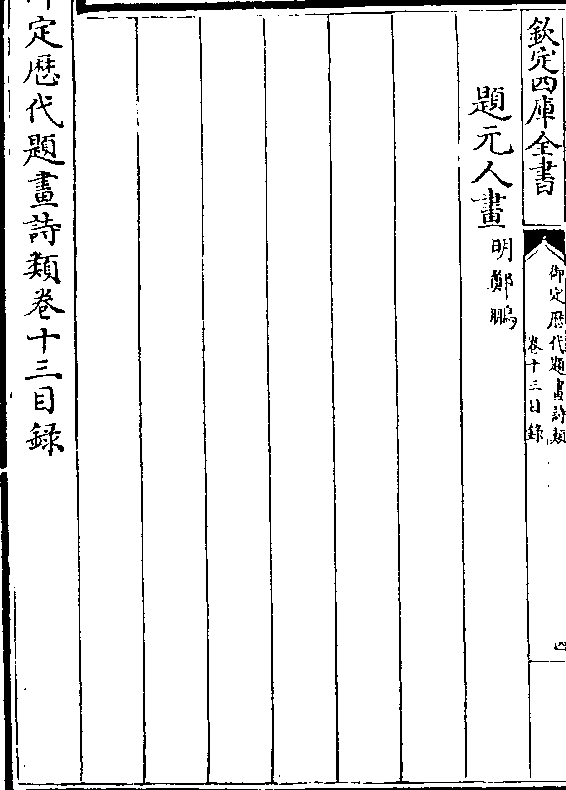 欽定四庫全書
御定歴代題畫詩類
卷十三目録
四
題元人畫明鄭鵬
御定歴代題畫詩類卷十三目録